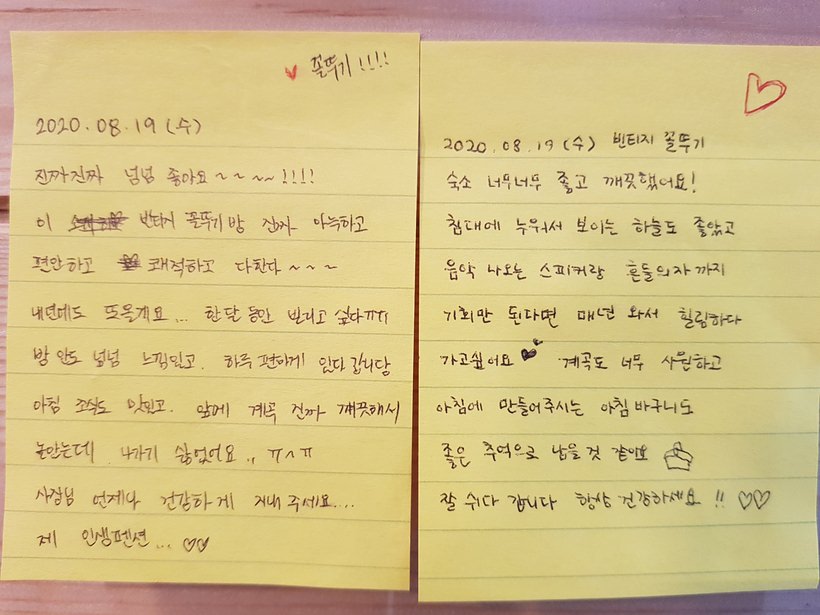 꼴뚜기!!!!
2020.08.19(수)
진짜진짜 넘넘 좋아요~~~~!!!!
이 빈티지 꼴뚜기방 진짜 아늑하고
편안하고 쾌적하고 다한다~~~
내년에도 또올게요... 한달 동안 빌리고 싶다ㅠㅠ
방 안도 넘넘 느낌있고. 하루 편하게 있다 갑니당
아침 조식도 맛있고. 앞에 계곡 진짜 깨끗해서
놀았는데 나가기 싫었어요.. ㅠㅅㅠ
사장님 언제나 건강하게 지내주세요....
제 인생펜션... ♡♡
2020.08.19(수) 빈티지 꼴뚜기
숙소 너무너무 좋고 깨끗했어요!
침대에 누워서 보이는 하늘도 좋았고
음악 나오는 스피커랑 흔들의자까지
기회만 된다면 매년 와서 힐링하다
가고싶어요 계곡도 너무 시원하고
아침에 만들어주시는 아침바구니도
좋은 추억으로 남을것 같아요
잘 쉬다 갑니다 항상 건강하세요!! ♡♡